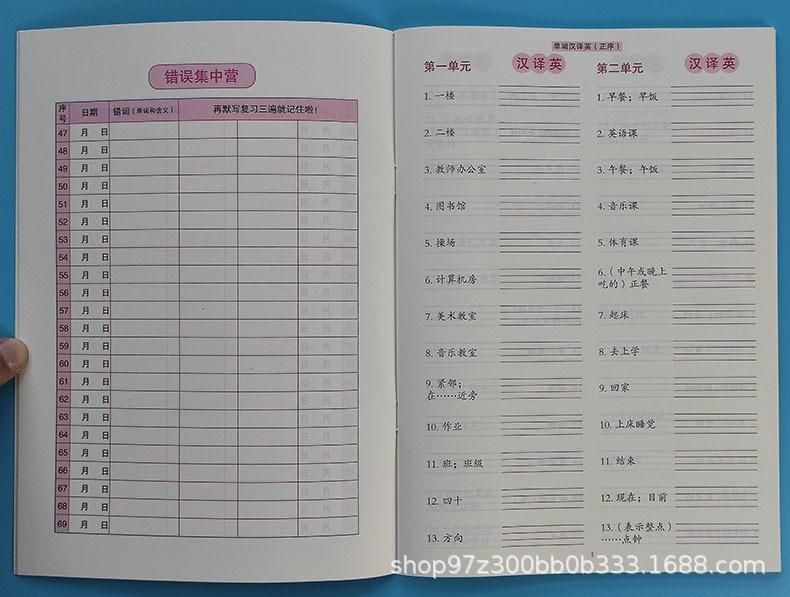 错误集中营
序号 日期 错词(单词和含义) 再默写复习三遍就记住啦!
47 月 日
48 月 日
49 月 日
50 月 日
51 月 日
52 月 日
53 月 日
54 月 日
55 月 日
56 月 日
57 月 日
58 月 日
59 月 日
60 月 日
61 月 日
62 月 日
63 月 日
64 月 日
65 月 日
66 月 日
67 月 日
68 月 日
69 月 日
单词汉译英(正序)
第一单元 汉译英
1. 一楼
2. 二楼
3. 教师办公室
4. 图书馆
5. 操场
6. 计算机房
7. 美术教室
8. 音乐教室
9. 紧邻;
在……近旁
10. 作业
11. 班;班级
12. 四十
13. 方向
第二单元 汉译英
1. 早餐;早饭
2. 英语课
3. 午餐;午饭
4. 音乐课
5. 体育课
6.(中午或晚上
吃的)正餐
7. 起床
8. 去上学
9. 回家
10. 上床睡觉
11. 结束
12. 现在;目前
13.(表示整点)
……点钟
1
shop97z300bb0b333.1688.com